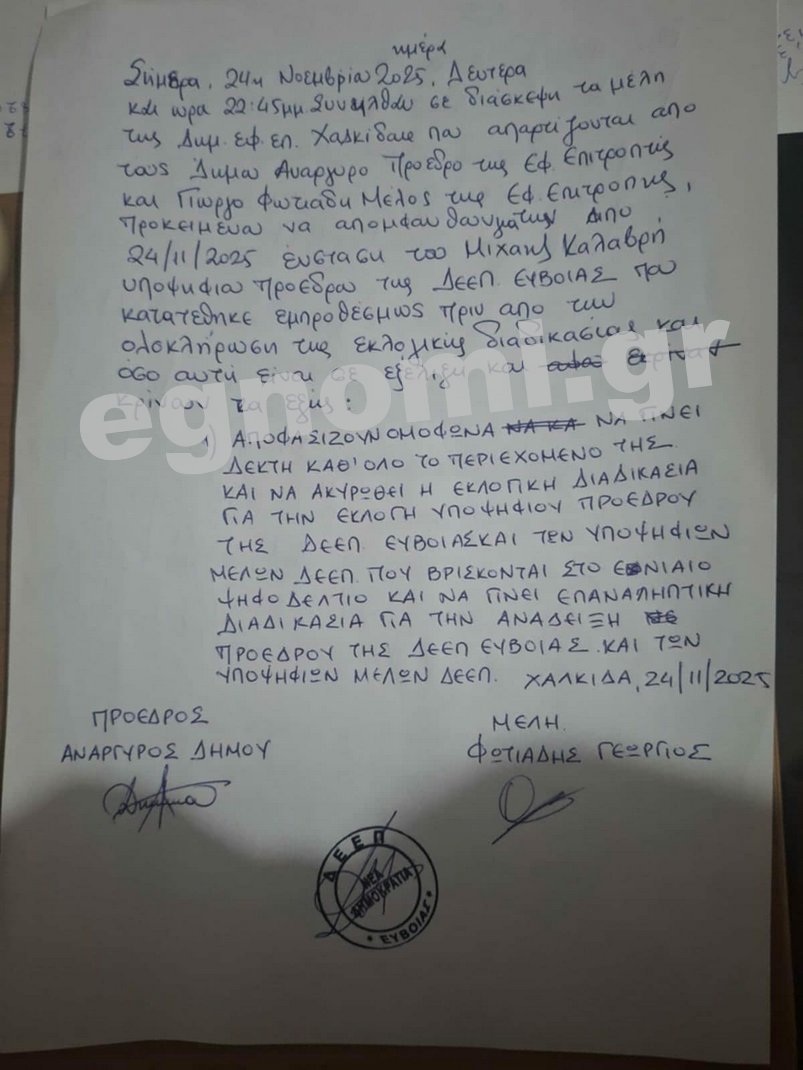 ημέρα
Σήμερα, 24η Νοεμβρίου 2025, Δευτέρα
και ώρα 22:45μμ. Συνήλθαν σε διάσκεψη τα μέλη
της Δημ. εφ. επ. Χαλκιδαις που απαρτίζονται απο
τους Δήμου Αναργυρο Προεδρο της Εφ. Επιτροπής
και Γιωργο Φωτιάδη Μέλος της Εφ. Επιτροπης,
προκειμένου να αποφανθουν για την απο
24/11/2025 ένσταση του Μιχαης Καλαβρή
υποψηφιου προεδρου της ΔΕΕΠ. ΕΥΒΟΙΑΣ που
κατατέθηκε εμπροθέσμως πριν απο την
ολοκλήρωση της εκλογικής διαδικασίας και
όσο αυτή είναι σε εξέλιξη και
κρίνουν τα εξής:
1) ΑΠΟΦΑΣΙΖΟΥΝ ΟΜΟΦΩΝΑ ΝΑ ΚΑ ΝΑ ΓΙΝΕΙ
ΔΕΚΤΗ ΚΑΘ' ΟΛΟ ΤΟ ΠΕΡΙΕΧΟΜΕΝΟ ΤΗΣ
ΚΑΙ ΝΑ ΑΚΥΡΩΘΕΙ Η ΕΚΛΟΓΙΚΗ ΔΙΑΔΙΚΑΣΙΑ
ΓΙΑ ΤΗΝ ΕΚΛΟΓΗ ΥΠΟΨΗΦΙΟΥ ΠΡΟΕΔΡΟΥ
ΤΗΣ ΔΕΕΠ. ΕΥΒΟΙΑΣ ΚΑΙ ΤΩΝ ΥΠΟΨΗΦΙΩΝ
ΜΕΛΩΝ ΔΕΕΠ. ΠΟΥ ΒΡΙΣΚΟΝΤΑΙ ΣΤΟ ΕΝΙΑΙΟ
ΨΗΦΟΔΕΛΤΙΟ ΚΑΙ ΝΑ ΓΙΝΕΙ ΕΠΑΝΑΛΗΠΤΙΚΗ
ΔΙΑΔΙΚΑΣΙΑ ΓΙΑ ΤΗΝ ΑΝΑΔΕΙΞΗ
ΠΡΟΕΔΡΟΥ ΤΗΣ ΔΕΕΠ ΕΥΒΟΙΑΣ. ΚΑΙ ΤΩΝ
ΥΠΟΨΗΦΙΩΝ ΜΕΛΩΝ ΔΕΕΠ. ΧΑΛΚΙΔΑ, 24/11/2025
ΠΡΟΕΔΡΟΣ
ΑΝΑΡΓΥΡΟΣ ΔΗΜΟΥ
ΜΕΛΗ.
ΦΩΤΙΑΔΗΣ ΓΕΩΡΓΙΟΣ
ΔΕΕΠ
ΝΕΑ
ΔΗΜΟΚΡΑΤΙΑ
ΕΥΒΟΙΑΣ
egnomi.gr